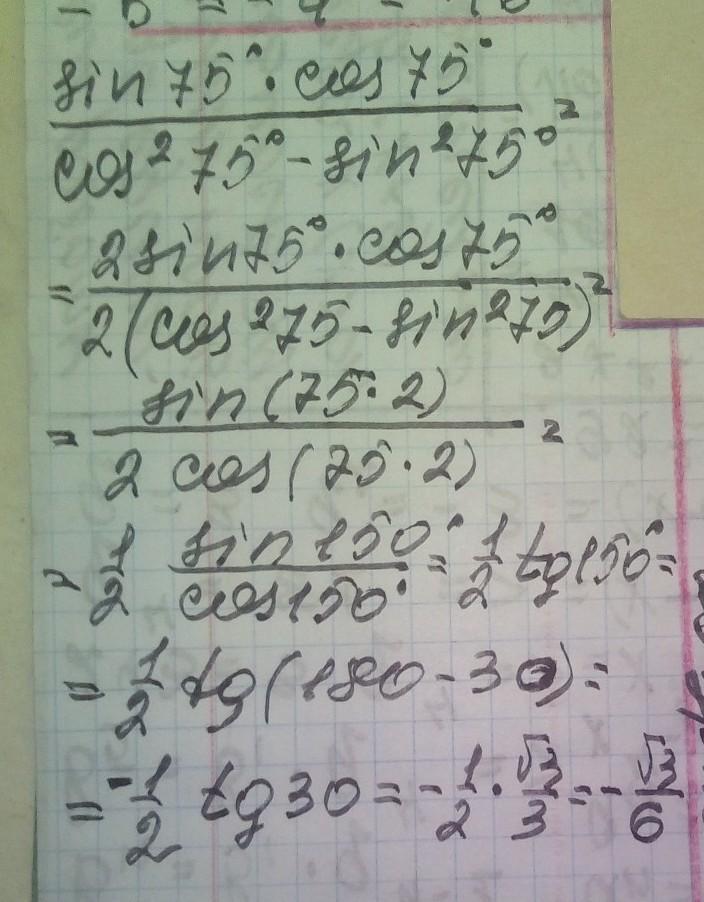 sin 75° · cos 75°
cos² 75° - sin² 75° =
= 2 sin 75° · cos 75°
2(cos² 75 - sin² 75) =
= sin (75 · 2)
2 cos (75 · 2) =
= 1/2 sin 150° / cos 150° = 1/2 tg 150° =
= 1/2 tg (180 - 30) =
= - 1/2 tg 30 = - 1/2 · √3/3 = - √3/6